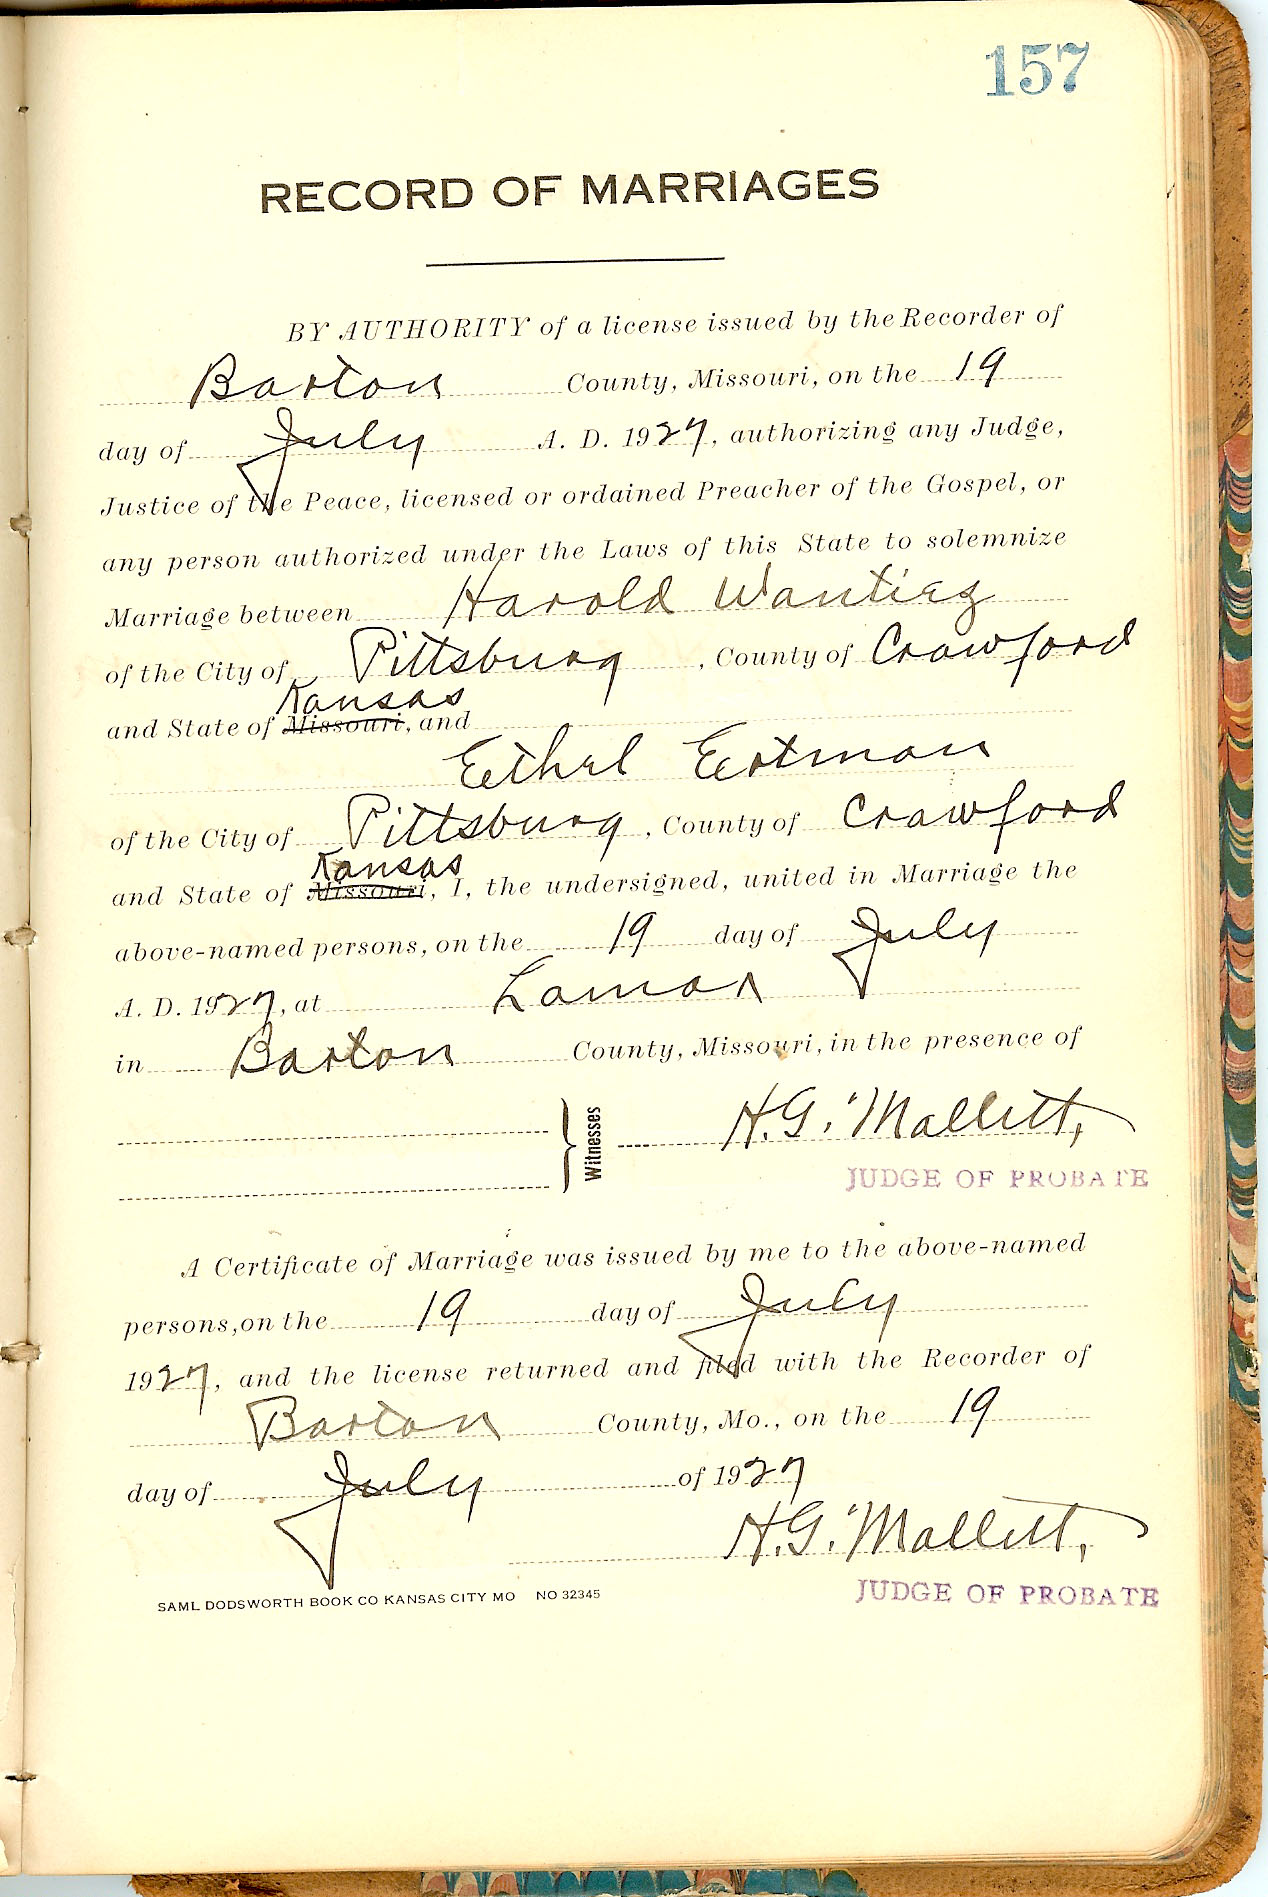 157
RECORD OF MARRIAGES
BY AUTHORITY of a license issued by the Recorder of
Barton County, Missouri, on the 19
day of July A. D. 1927, authorizing any Judge,
Justice of the Peace, licensed or ordained Preacher of the Gospel, or
any person authorized under the Laws of this State to solemnize
Marriage between Harold Wantiez
of the City of Pittsburg, County of Crawford
Kansas
and State of Missouri, and
Ethel Eertman
of the City of Pittsburg, County of Crawford
Kansas
and State of Missouri, I, the undersigned, united in Marriage the
above-named persons, on the 19 day of July
A. D. 1927, at Lamar
in Barton County, Missouri, in the presence of
Witnesses H.G. Mallett,
JUDGE OF PROBATE
A Certificate of Marriage was issued by me to the above-named
persons, on the 19 day of July
1927, and the license returned and filed with the Recorder of
Barton County, Mo., on the 19
day of July of 1927
H.G. Mallett,
SAML DODSWORTH BOOK CO KANSAS CITY MO NO 32345
JUDGE OF PROBATE